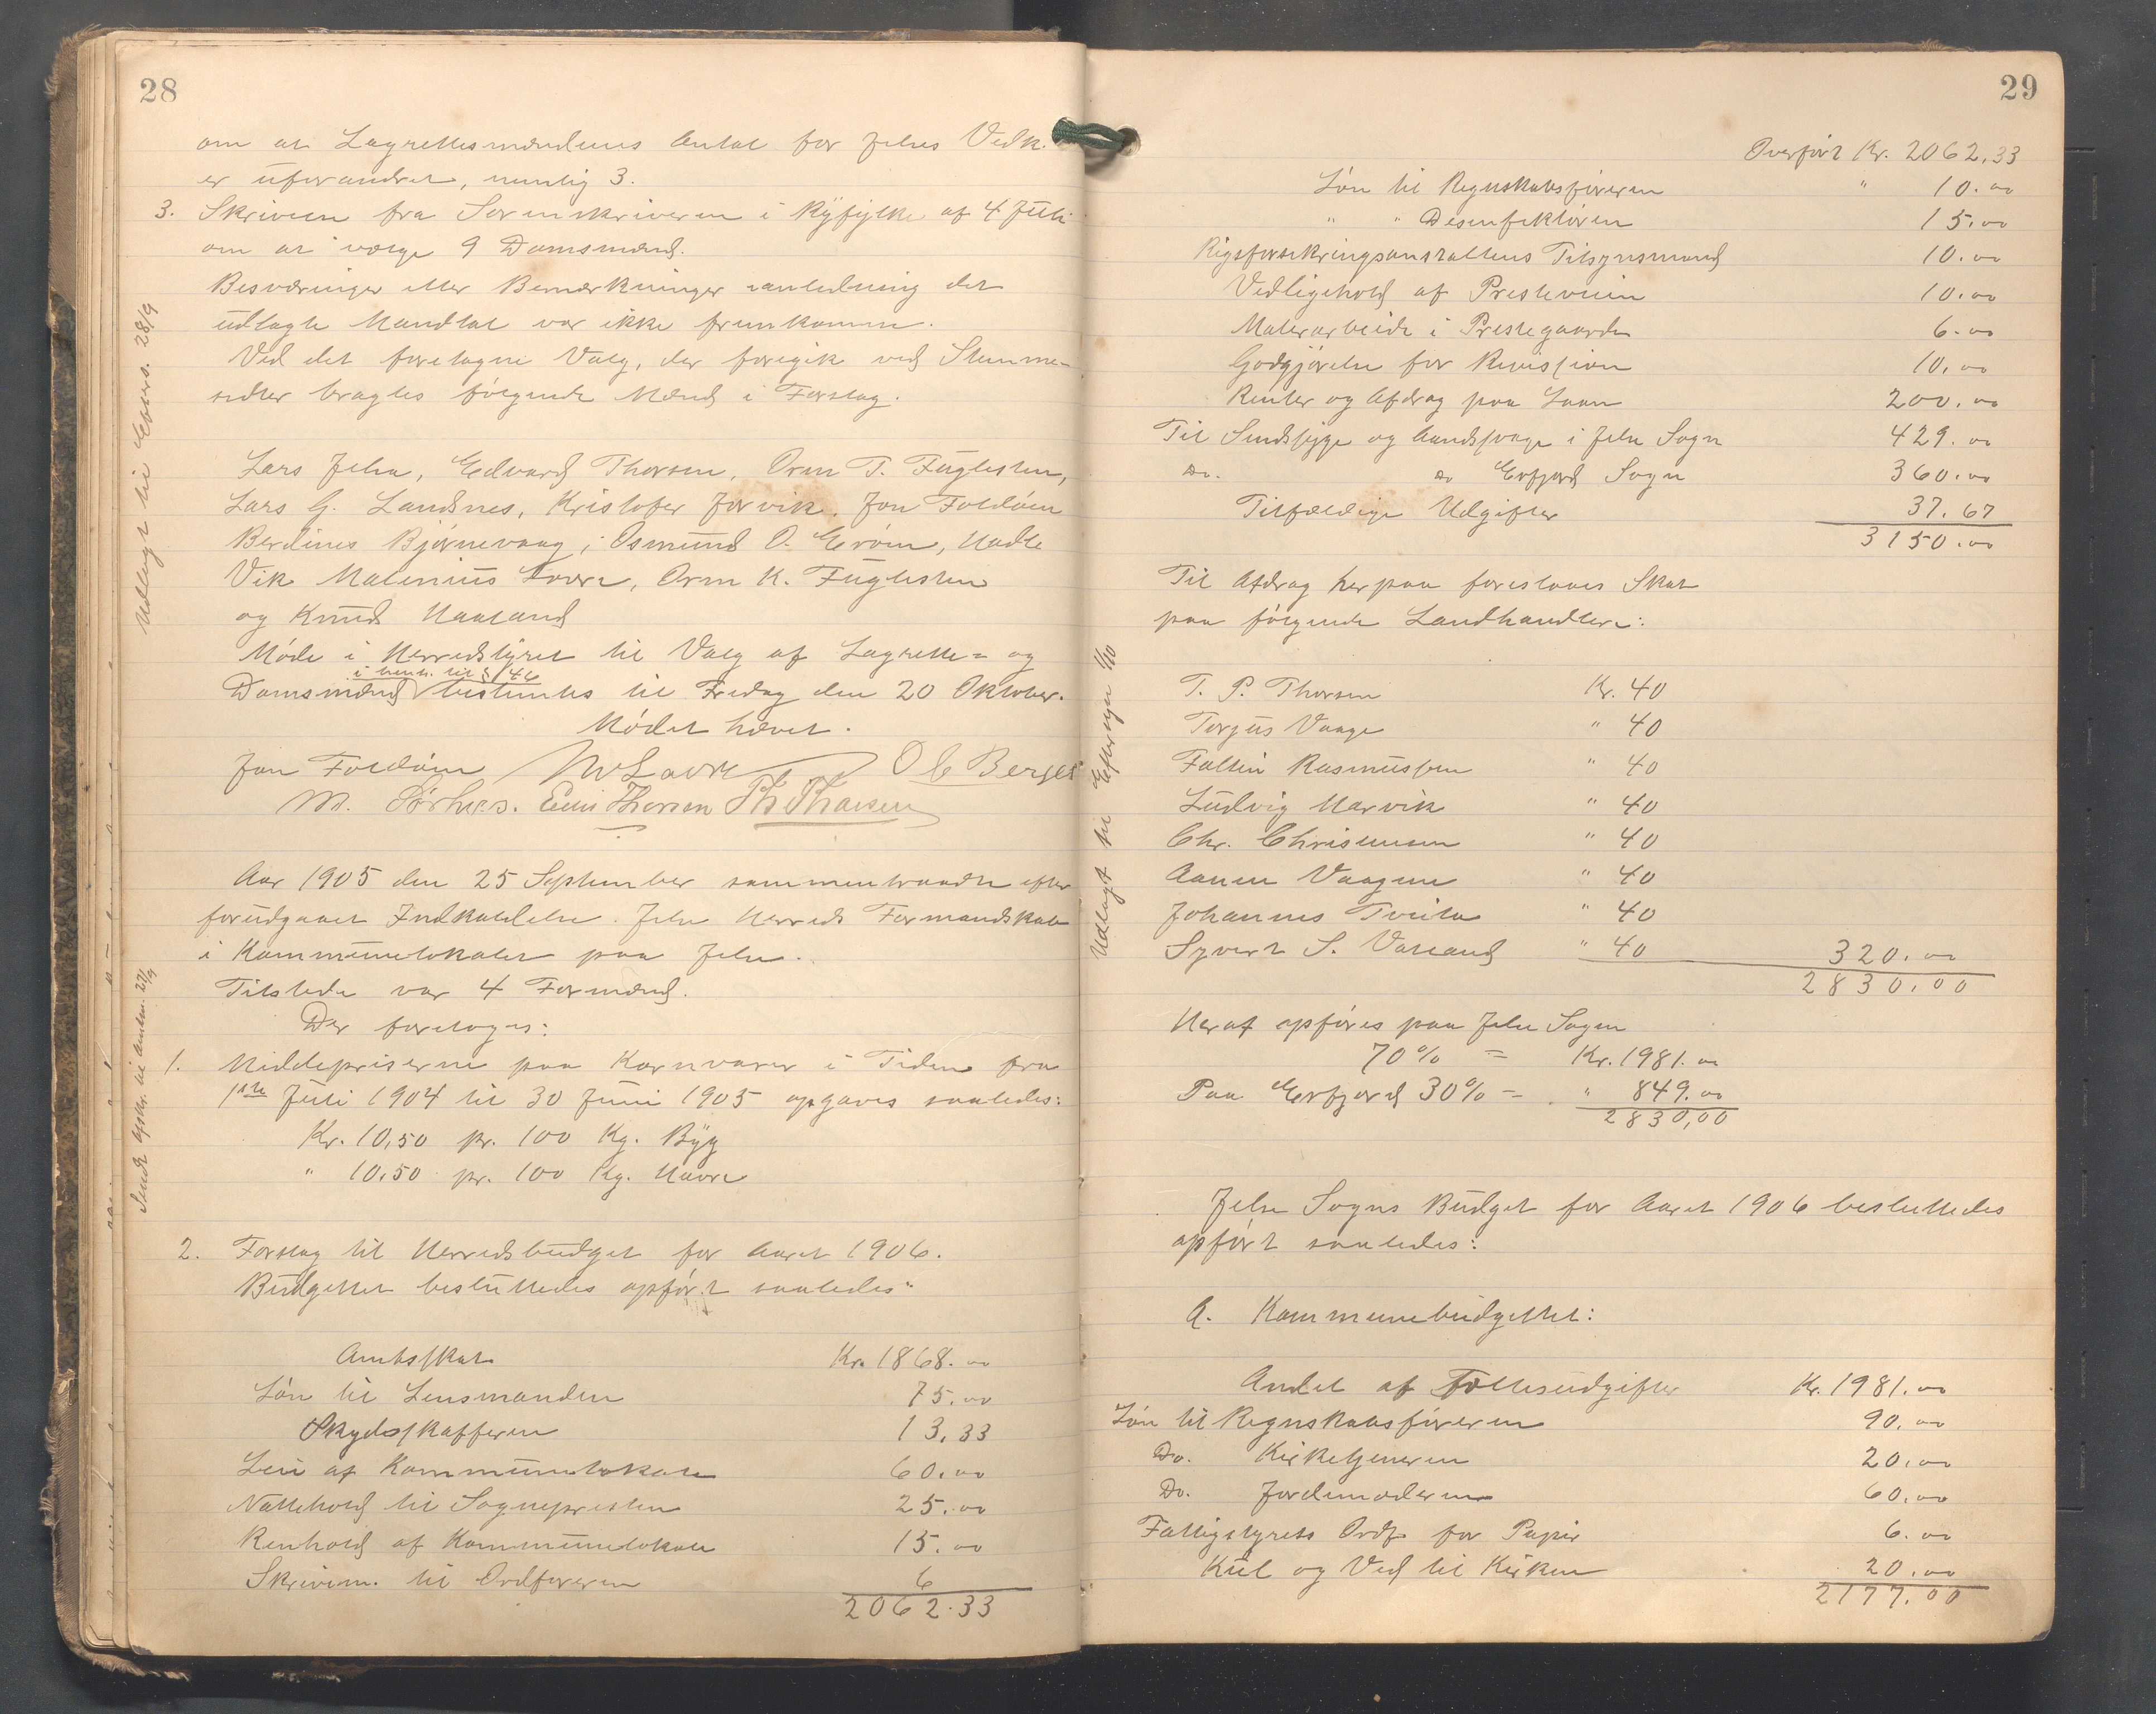 28
om at Lagrettesmændenes Antal for Jelse Vedk.
er uforandret, nemlig 3.
3. Skrivelse fra Sorenskriveren i Ryfylke af 4 Juli
om at vælge 9 Domsmænd.
Besværinger eller Bemærkninger i anledning det
udlagte Mandtal var ikke fremkommen.
Ved det foretagne Valg, der foregik ved Stemme-
sedler bragtes følgende Mænd i Forslag.
Udlagt til Eders. 28/9
Lars Jelsa, Edvard Thorsen, Orm T. Fuglesten,
Lars G. Landsnes, Kristofer Jorvik, Jon Foldøen
Berdines Bjørnevaag, Osmund O. Erøen, Nadle
Vik Malenius Lovra, Orm K. Fuglesten
og Knud Haaland
Møde i Herredstyret til Valg af Lagrette- og
i henh. til § 46
Domsmænd bestemtes til Fredag den 20 Oktober.
Mødet hævet.
Jon Foldøen M Lovra O C Berge
M. Sørhus. Edv Thorsen Th Thorsen
Aar 1905 den 25 September sammentraadte efter
forudgaaet Indkaldelse Jelse Herreds Formandskab
i Kommunelokalet paa Jelse.
Tilstede var 4 Formænd.
Der foretoges:
1. Middelpriserne paa Kornvarer i Tiden fra
1ste Juli 1904 til 30 Juni 1905 opgaves saaledes:
Kr. 10,50 pr. 100 Kg. Byg
" 10.50 pr. 100 Kg. Havre
Sendt afskr. til Amtm. 27/9
2. Forslag til Herredsbudget for Aaret 1906.
Budgettet besluttedes opført saaledes:
Amtsskat Kr. 1868.00
Løn til Lensmanden 75.00
Skydsskafferen 13,33
Leie af Kommunelokale 60.00
Nattehold til Sognepresten 25.00
Renhold af Kommunelokale 15.00
Skrivem. til Ordføreren 6
2062.33
29
Overført Kr. 2062,33
Løn til Regnskabsføreren " 10.00
" " Desinfektøren 15.00
Rigsforsikringsanstaltens Tilsynsmand 10.00
Vedligehold af Presteveien 10.00
Malerarbeide i Prestegaarden 6.00
Godtgjørelse for Revission 10.00
Renter og Afdrag paa Laan 200.00
Til Sindssyge og Aandssvage i Jelse Sogn 429.00
Do. Do Erfjord Sogn 360.00
Tilfældige Udgifter 37.67
3150.00
Til Afdrag herpaa foreslaaes Skat
paa følgende Landhandlere:
Udlagt til Eftersyn 1/10
T. P. Thorsen Kr. 40
Torjus Vaage " 40
Faltin Rasmussen " 40
Ludvig Marvik " 40
Chr. Christensen " 40
Aanen Vaagene " 40
Johannes Tveita " 40
Syvert S. Vatland " 40 320.00
2830.00
Heraf opføres paa Jelse Sogn
70% = Kr. 1981.00
Paa Erfjord 30% = " 849.00
2830,00
Jelse Sogns Budget for Aaret 1906 besluttedes
opført saaledes:
A. Kommunebudgettet:
Andel af Fællesudgifter Kr. 1981.00
Løn til Regnskabsføreren 90.00
Do. Kirketjeneren 20.00
Do. Jordemoderen 60.00
Fattigstyrets Ordf. for Papir 6.00
Kul og Ved til Kirken 20.00
2177.00